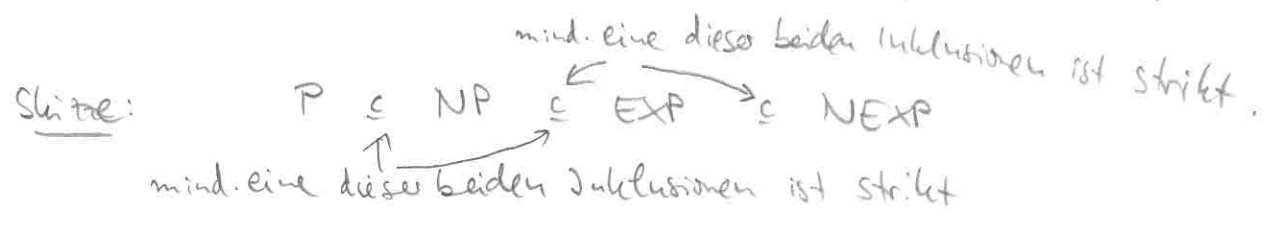 mind. eine dieser beiden Inklusionen ist strikt.
Skizze: P ⊆ NP ⊆ EXP ⊆ NEXP
mind. eine dieser beiden Inklusionen ist strikt